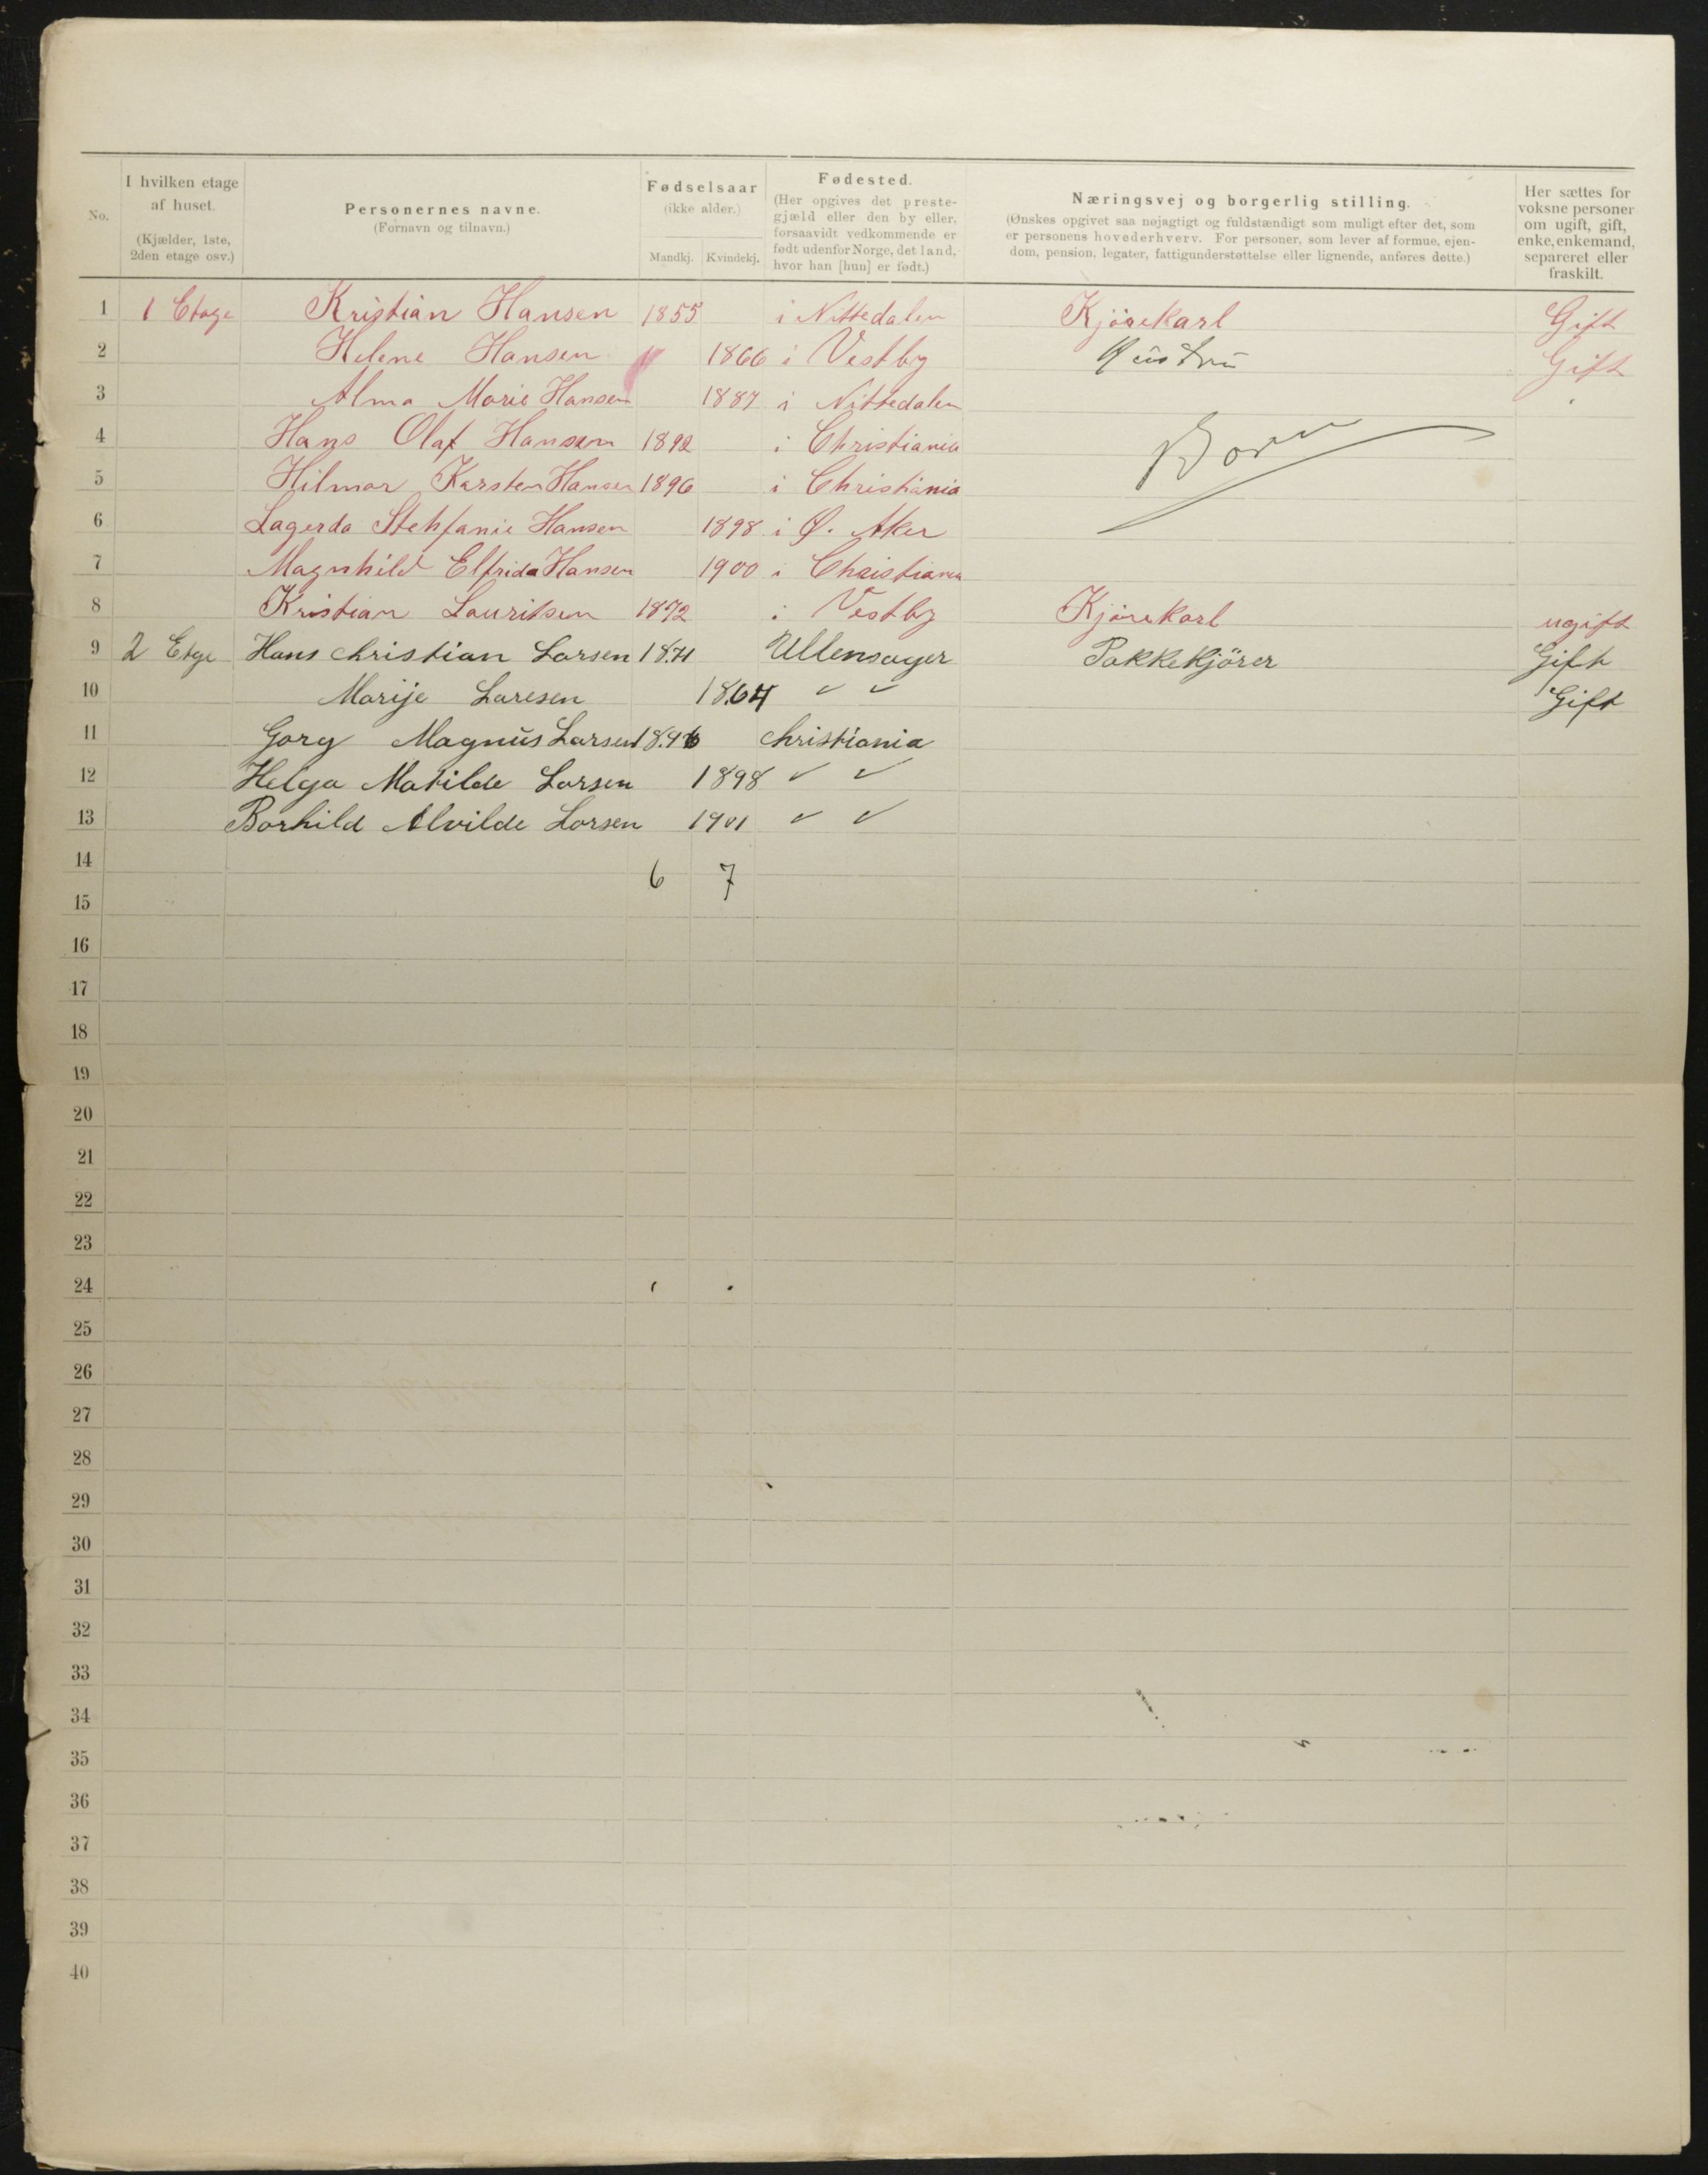 No.
I hvilken etage af huset. (Kjælder, 1ste, 2den etage osv.)
Personernes navne. (Fornavn og tilnavn.)
Fødselsaar (ikke alder.)
Mandkj. Kvindekj.
Fødested. (Her opgives det prestegjæld eller den by eller, forsaavidt vedkommende er født udenfor Norge, det land, hvor han [hun] er født.)
Næringsvej og borgerlig stilling.
(Ønskes opgivet saa nøjagtigt og fuldstændigt som muligt efter det, som er personens hovederhverv. For personer, som lever af formue, ejendom, pension, legater, fattigunderstøttelse eller lignende, anføres dette.)
Her sættes for voksne personer om ugift, gift, enke, enkemand, separeret eller fraskilt.
1 1 Etage Kristian Hansen 1855 i Nittedalen Kjørekarl Gift
2 Helene Hansen 1866 i Vestby Hustru Gift
3 Alma Marie Hansen 1887 i Nittedalen
4 Hans Olaf Hansen 1892 i Christiania Børn
5 Hilmar Karsten Hansen 1896 i Christiania
6 Lagerda Stehfanie Hansen 1898 i Ø. Aker
7 Magnhild Elfrida Hansen 1900 i Christiania
8 Kristian Lauritsen 1872 i Vestby Kjørekarl ugift
9 2 Etge Hans christian Larsen 1871 Ullensager Pakkekjörer Gift
10 Marije Laresen 1864 〃 〃 Gift
11 Gorg Magnus Larsen 1896 christiania
12 Helga Matilde Larsen 1898 〃 〃
13 Borhild Alvilde Larsen 1901 〃 〃
14 6 7
15
16
17
18
19
20
21
22
23
24
25
26
27
28
29
30
31
32
33
34
35
36
37
38
39
40